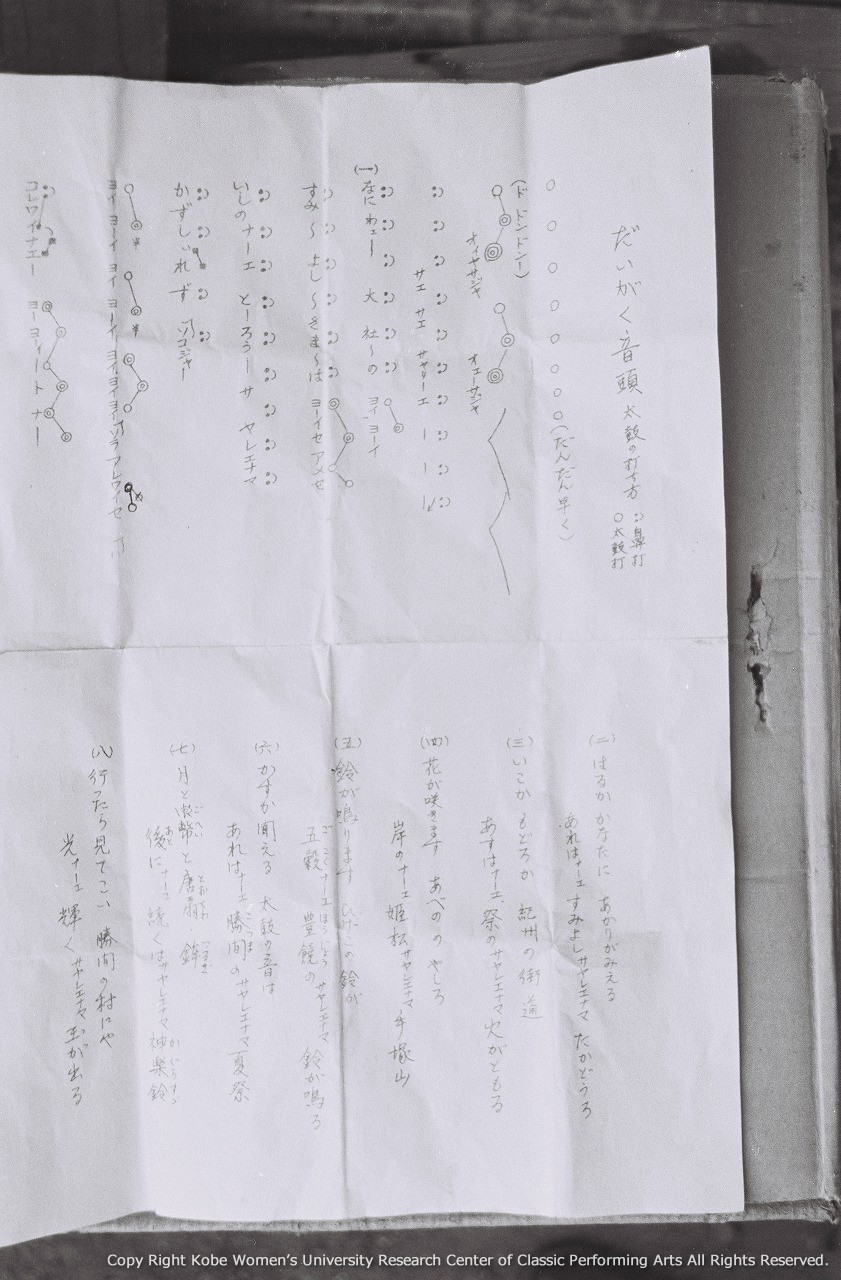 だいがく音頭 太鼓の打ち方
鼻打
○太鼓打
○ ○ ○ ○ ○ ○ ○ ○(だんだん早く)
(ド ドンドンー)
オイヤサジャ オエーサジャ
サエ サエ サャリーエ ー ー
(一)なにわエー 大社〜の ヨイ ヨーイ
すみ〜 よし〜さま〜は ヨーイセアメセ
いしのナーエ とーろうーサ ヤレエナマ
かずしいれず
ヨイ ヨーイ ヨイ ヨーイ ヨイヨイヨイ
コレワイナエー ヨーヨイート ナー
(二)はるか かなたに あかりがみえる
あれはナーエ すみよしサヤレエナマ たかどうろ
(三)いこか もどろか 紀州の街道
あすはナーエ 祭のサヤレエナマ 火がともる
(四)花が咲きます あべの の やしろ
岸のナーエ 姫松サヤレエナマ 手塚山
(五)鈴が鳴ります ひげこの鈴が
五穀ナーエ 豊饒のサヤレエナマ 鈴が鳴る
(六)かすか聞える 太鼓の音は
あれはナーエ 勝間のサヤレエナマ 夏祭
(七)月と御幣と唐扇 鉾
後にナーエ 続くはサヤレエナマ 神楽鈴
(八)行ったら見てこい 勝間の村にゃ
光ナーエ 輝くサヤレエナマ 玉が出る
Copy Right Kobe Women's University Research Center of Classic Performing Arts All Rights Reserved.